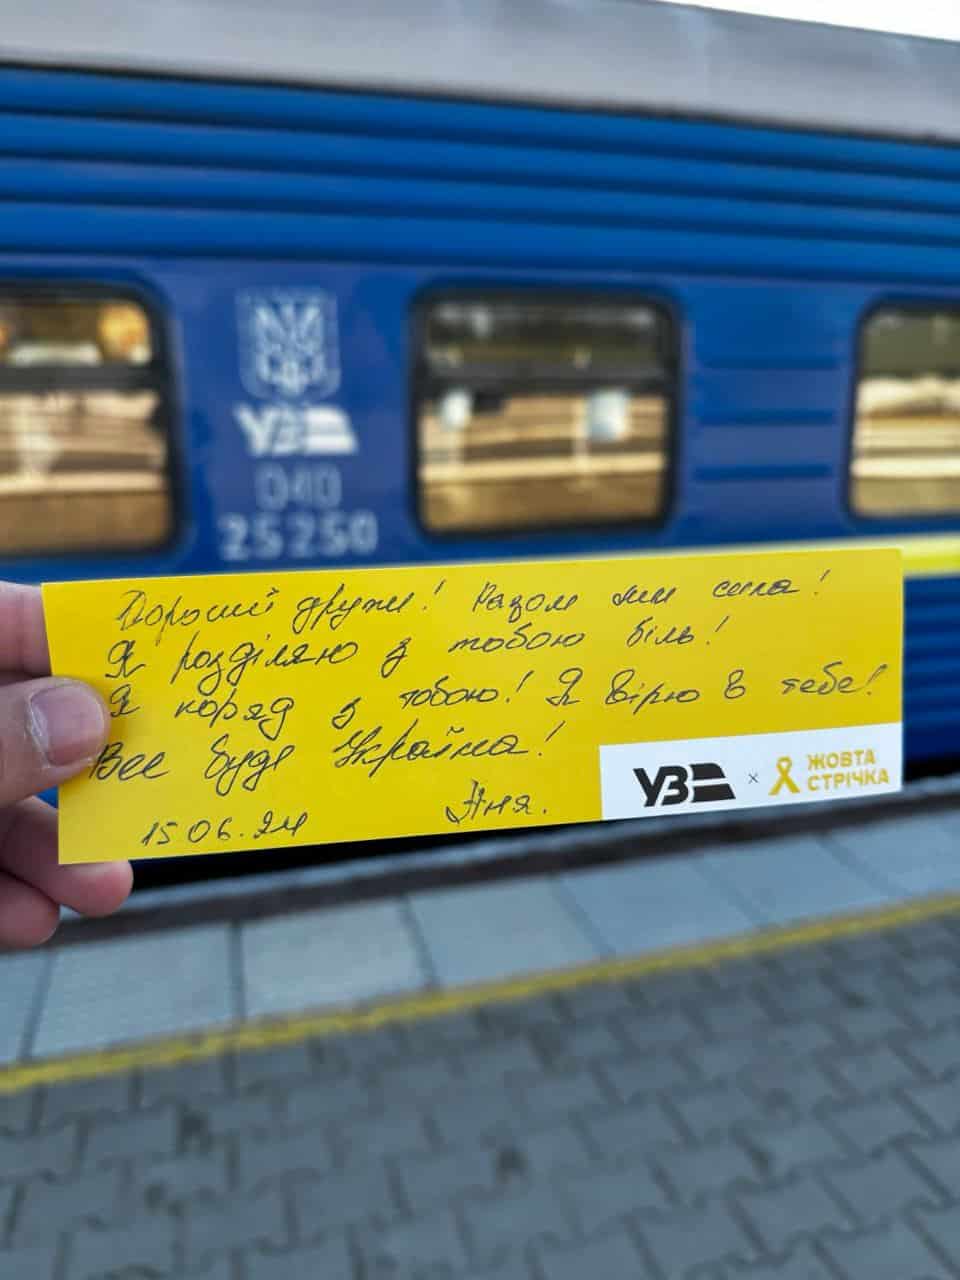 УЗ
040
25250
Дорогий друже! Разом ми сила!
Я розділяю з тобою біль!
Я поряд з тобою! Я вірю в тебе!
Все буде Україна!
15 06.24 Аня.
УЗ × ЖОВТА
СТРІЧКА